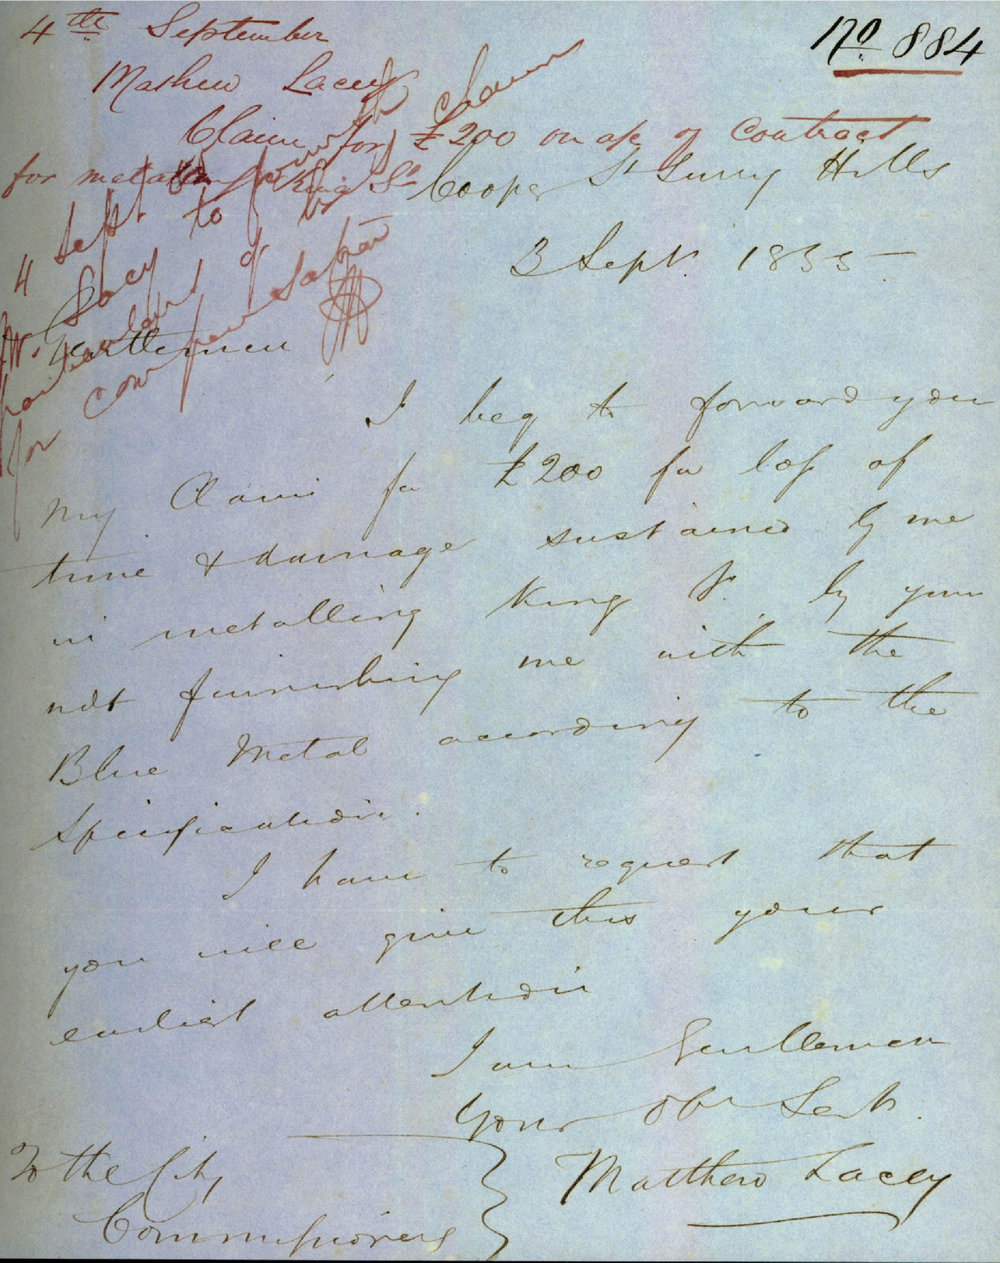 4th September
No. 884
Mathew Lacey
Claim for £200 on a/c of Contract
for metalling King St
4 Sept
Mr. Lacey to furnish
particulars of his claim
for compensation
Cooper St Surry Hills
3 Sept. 1855
Gentlemen
I beg to forward you
my Claim for £200 for loss of
time & damage sustained by me
in metalling King St. by your
not furnishing me with the
Blue Metal according to the
Specification.
I have to request that
you will give this your
earliest attention
I am Gentlemen
Your Obt Servt.
Matthew Lacey
To the City
Commissioners